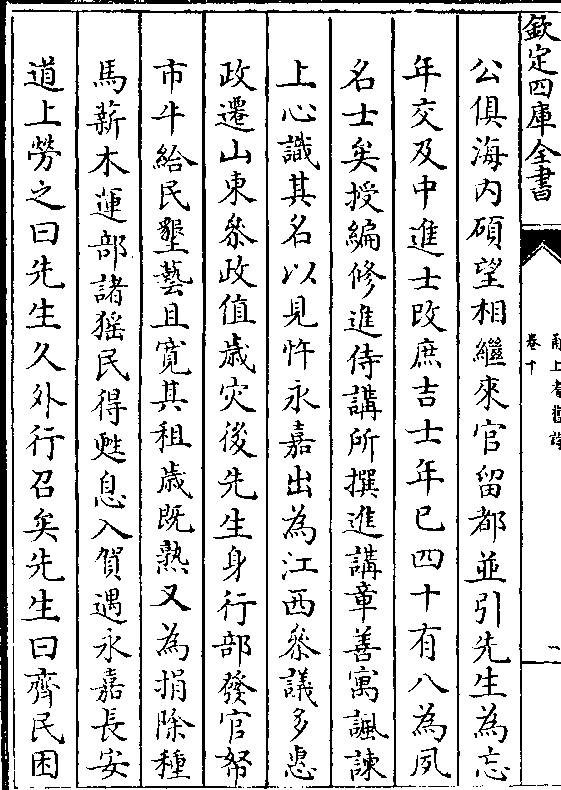 欽定四庫全書
卷十
二
公俱海内碩望相繼來官留都並引先生為忘
年交及中進士改庶吉士年已四十有八為夙
名士矣授編修進侍講所撰進講章善寓諷諫
上心識其名以見忤永嘉出為江西叅議多惠
政遷山東叅政值歲灾後先生身行部發官帑
市牛給民墾藝且寛其租歳既熟又為捐除種
馬薪木蓮部諸猺民得甦息入賀遇永嘉長安
道上勞之曰先生久外行召矣先生曰齊民困